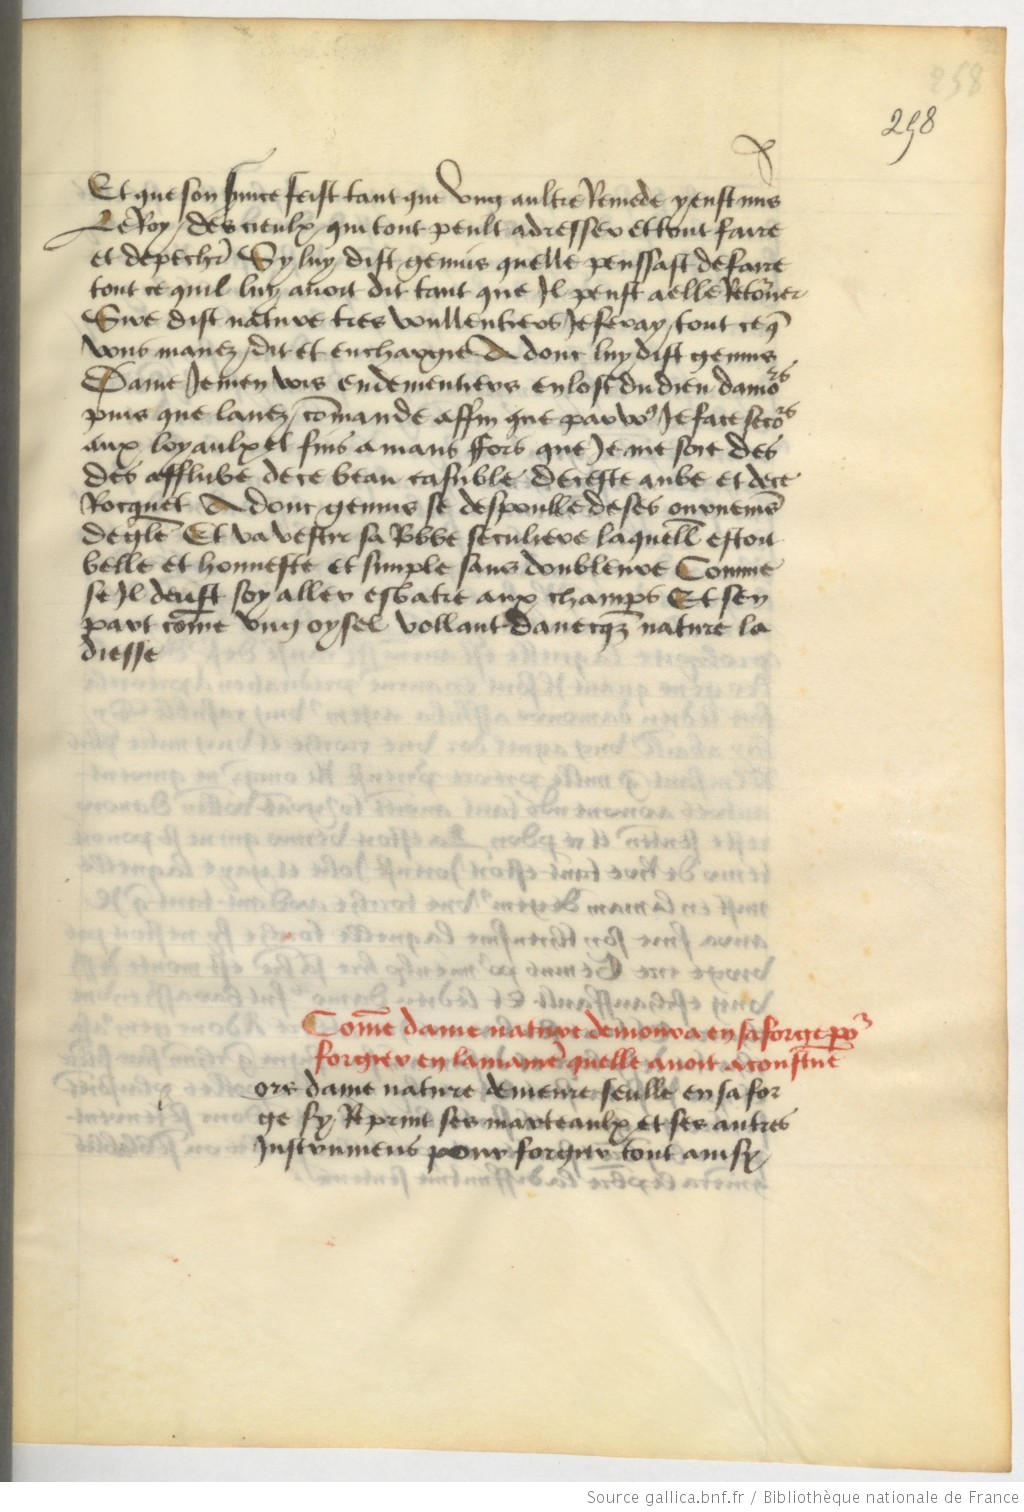 258
258
Et que son prince feist tant que ung aultre Remede y eust mis
Le Roy des cieulx qui tout peult adresser et tout faire
et depecher Sy luy dist genius quelle penssast de faire
tout ce quil luy avoit dit tant que Il peust a elle Retourner
Sire dist nature tres voullentiers Je feray tout ce q̄
vous mavez dit et enchargie Adonc luy dist genius
Dame Je men vois endementiers en lost du dieu damors
puis que lavez cōmande affin que par vo9 Je face secors
aux loyaulx et fins amans ffors que Je me soie des
des afflube de ce beau casuble de ceste aube et de ce
Rocquet Adonc genius se despoulle de ses ournemēs
deglē Et va vestir sa Robbe seculiere laquelle estoit
belle et honneste et simple sans doubleure Comme
se Il deust soy aller esbatre aux champs Et sen
part cōme ung oysel vollant davecqz nature la
diesse
Cōme dame nature demoura en sa forge po2
forgier en la manie quelle avoit acoustume
ors dame nature demeure seulle en sa for
ge sy Reprint ses marteaulx et ses autres
Instrumens pour forgier tout ainsy
Source gallica.bnf.fr / Bibliothèque nationale de France